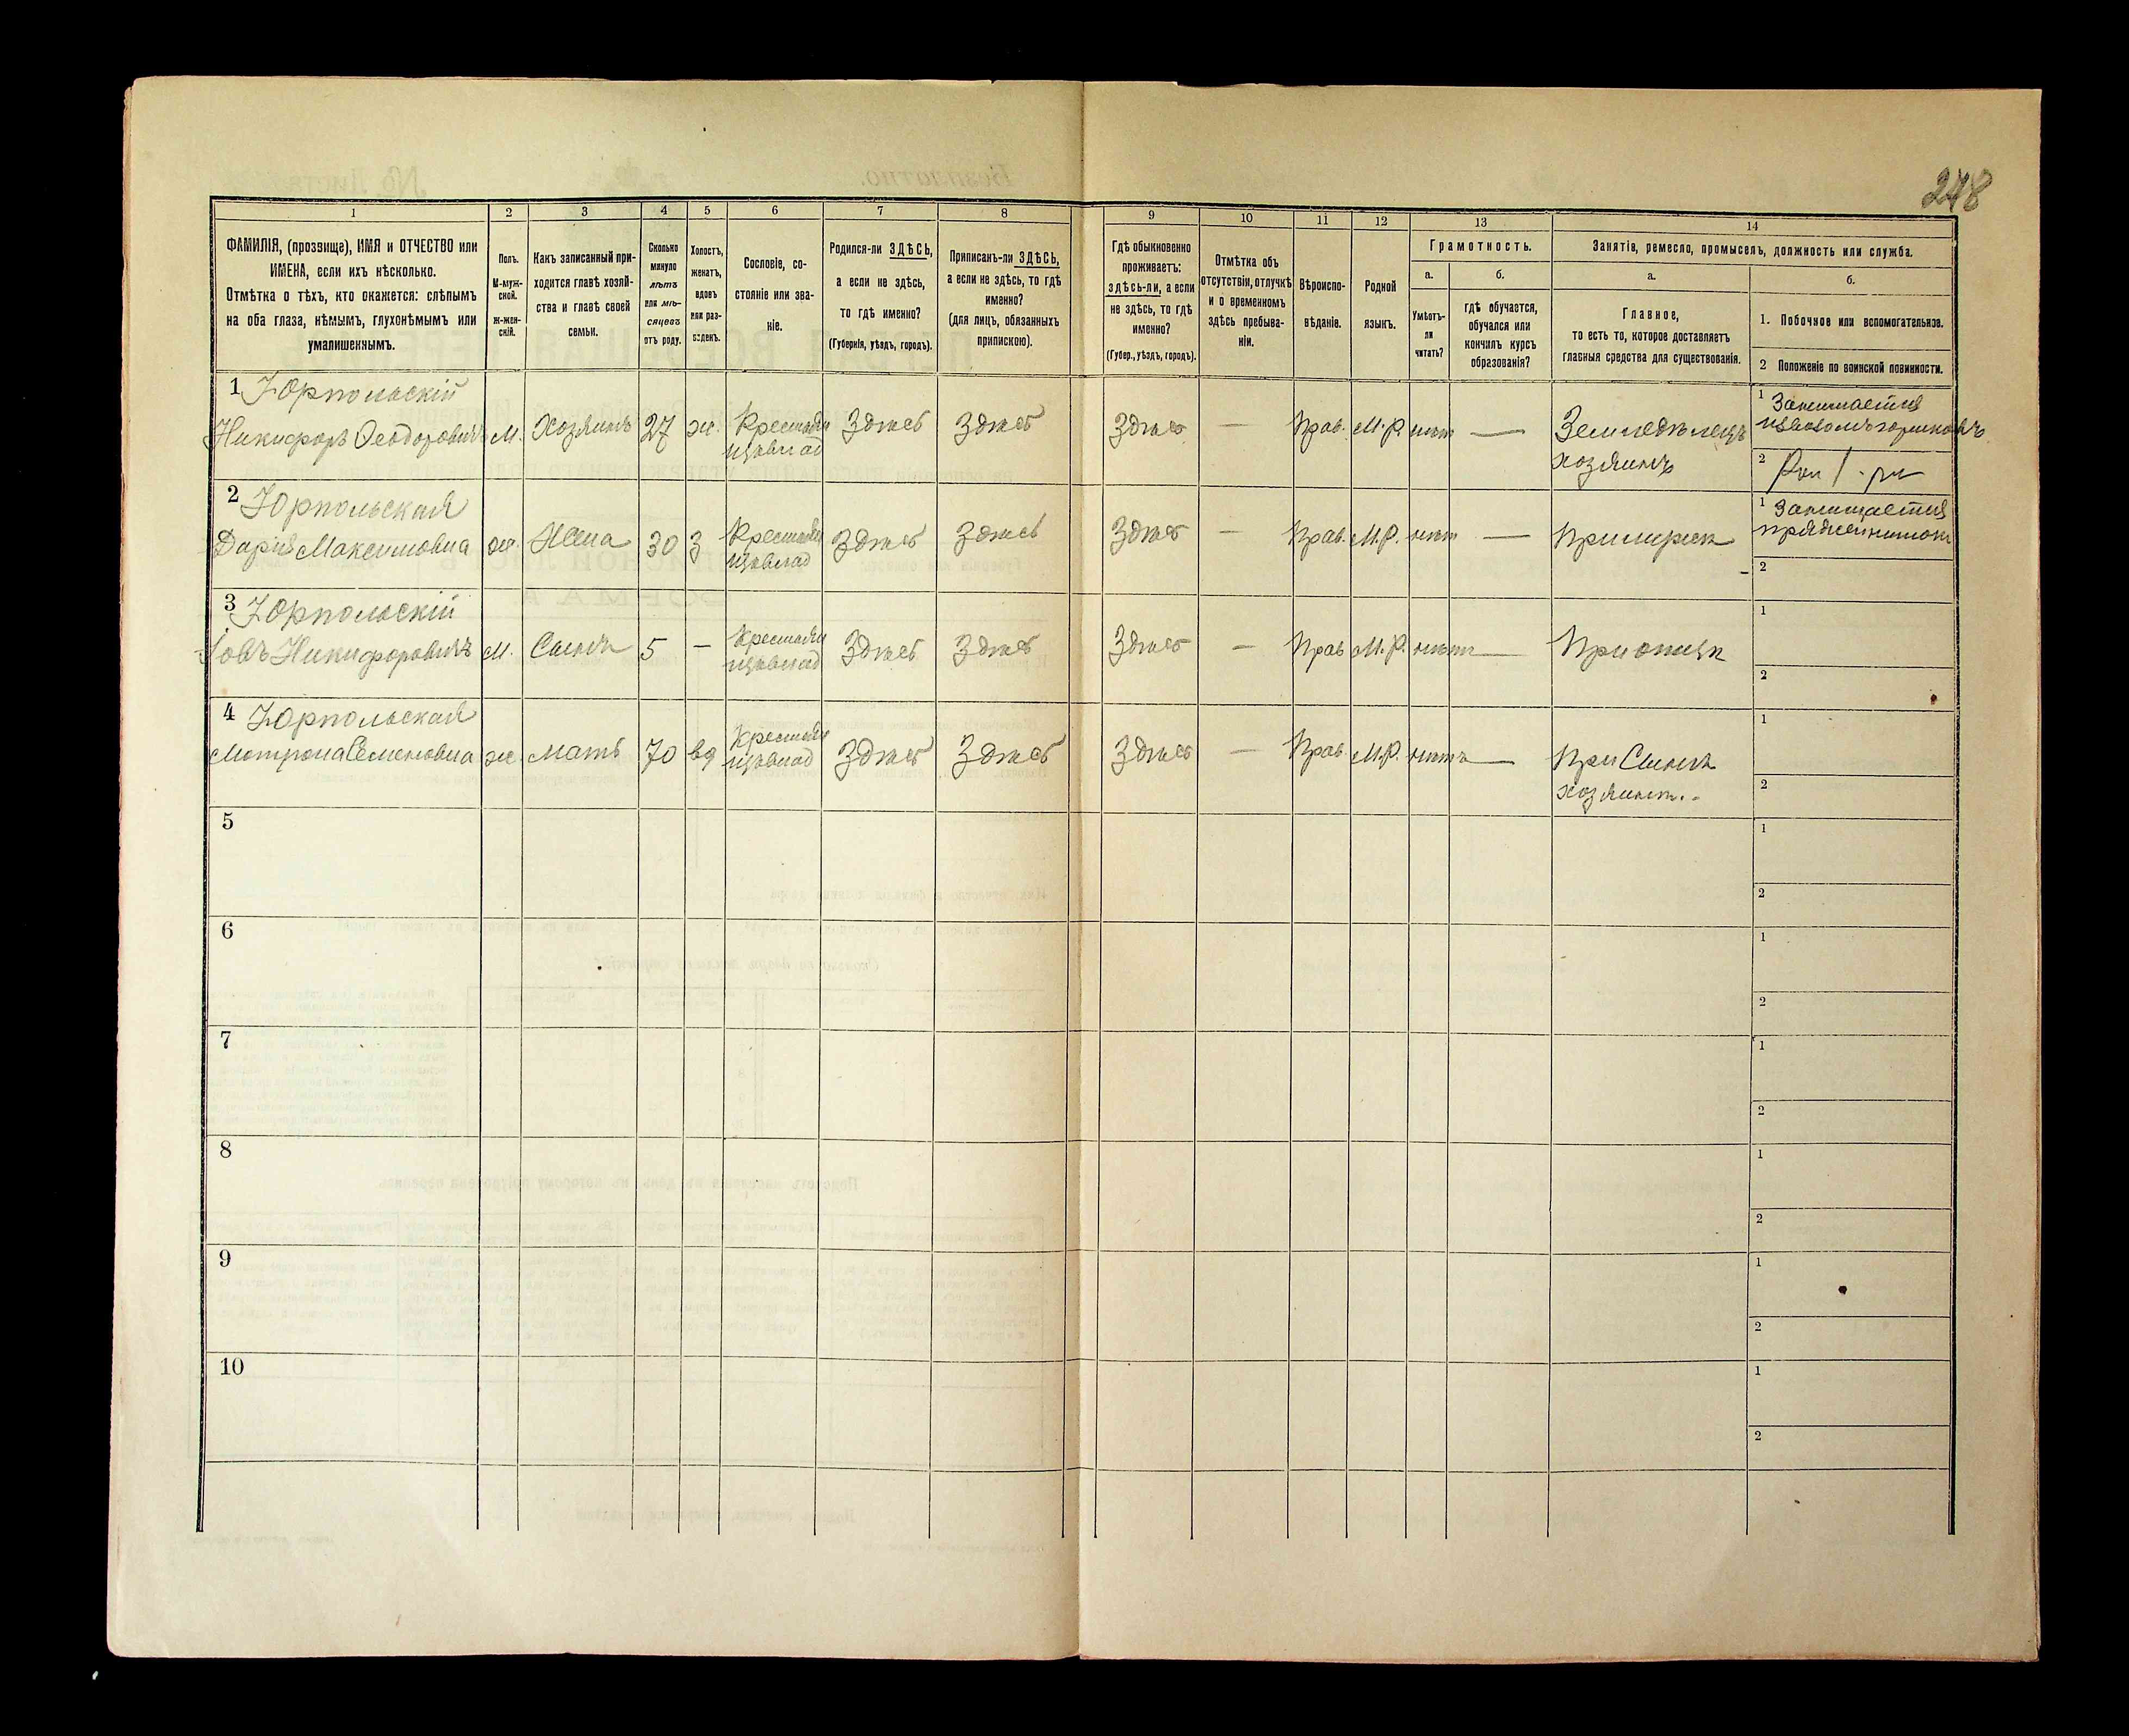 248
1 2 3 4 5 6 7 8 9 10 11 12 13 14
ФАМИЛІЯ, (прозвище), ИМЯ и ОТЧЕСТВО или
ИМЕНА, если ихъ нѣсколько.
Отмѣтка о тѣхъ, кто окажется: слѣпымъ
на оба глаза, нѣмымъ, глухонѣмымъ или
умалишеннымъ.
Полъ.
М-муж-
ской.
Ж-жен-
скій.
Какъ записанный при-
ходится главѣ хозяй-
ства и главѣ своей
семьи.
Сколько
минуло
лѣтъ
или мѣ-
сяцевъ
отъ роду.
Холостъ,
женатъ,
вдовъ
или раз-
веденъ.
Сословіе, со-
стояніе или зва-
ніе.
Родился-ли ЗДѢСЬ,
а если не здѣсь,
то гдѣ именно?
(Губернія, уѣздъ, городъ).
Приписанъ-ли ЗДѢСЬ,
а если не здѣсь, то гдѣ
именно?
(для лицъ, обязанныхъ
припискою).
Гдѣ обыкновенно
проживаетъ:
здѣсь-ли, а если
не здѣсь, то гдѣ
именно?
(Губер., уѣздъ, городъ).
Отмѣтка объ
отсутствіи, отлучкѣ
и о временномъ
здѣсь пребыва-
ніи.
Вѣроиспо-
вѣданіе.
Родной
языкъ.
Грамотность.
а.
Умѣетъ-
ли
читать?
б.
гдѣ обучается,
обучался или
кончилъ курсъ
образованія?
Занятіе, ремесло, промыселъ, должность или служба.
а.
Главное,
то есть то, которое доставляетъ
главныя средства для существованія.
б.
1. Побочное или вспомогательное.
2 Положеніе по воинской повинности.
1 Юрпольскій
Никифоръ Ѳеодоровичъ м. Хозяинъ 27 ж. Крестьян Здѣсь Здѣсь Здѣсь — Прав. М.Р. нѣт — Земледѣлецъ
хозяинъ
1 Занимается
2
2 Юрпольская
Дарія Максимовна ж. Жена 30 З Крестьян Здѣсь Здѣсь Здѣсь — Прав. М.Р. нѣт —
1 Занимается
2
3 Юрпольскій
Іовъ Никифоровичъ м. Сынъ 5 — Крестьян Здѣсь Здѣсь Здѣсь — Прав М.Р. нѣт — При отцѣ
1
2
4 Юрпольская
Мотрона Семеновна ж. мать 70 вд Крестьян Здѣсь Здѣсь Здѣсь — Прав М.Р. нѣтъ — При Сынѣ
хозяинѣ.
1
2
5
1
2
6
1
2
7
1
2
8
1
2
9
1
2
10
1
2